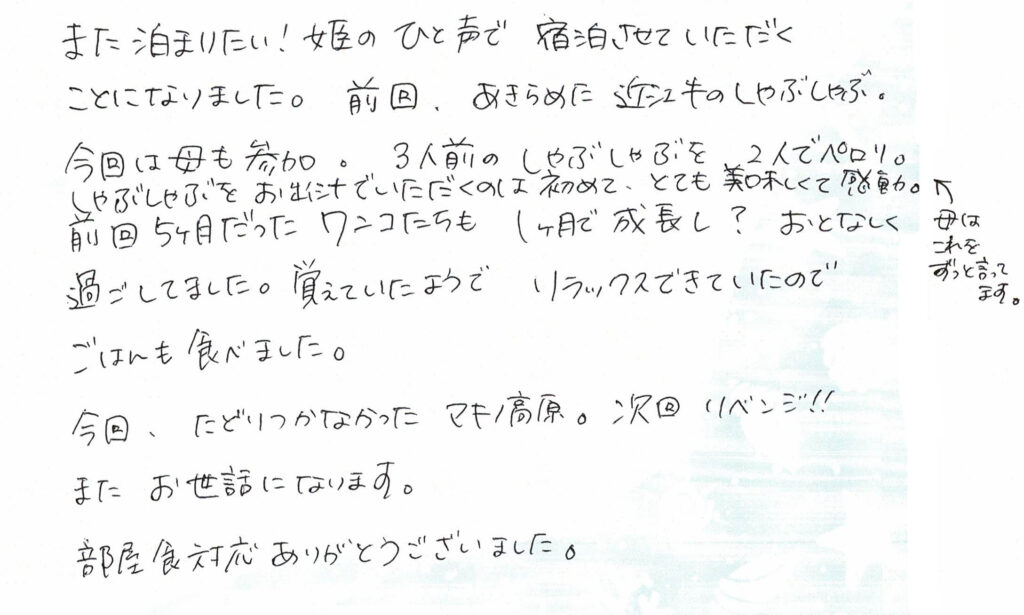 また泊まりたい！姫のひと声で 宿泊させていただく
ことになりました。 前回、あきらめた 近江牛のしゃぶしゃぶ。
今回は母も参加。 3人前のしゃぶしゃぶを 2人でペロリ。
しゃぶしゃぶを お出汁でいただくのは初めて、とても美味しくて感動。
↖
母は
これを
ずっと言って
ます。
前回5ヶ月だった ワンコたちも 1ヶ月で成長し？ おとなしく
過ごしてました。覚えていたようで リラックスできていたので
ごはんも食べました。
今回、たどりつかなかった マキノ高原。次回 リベンジ!!
また お世話になります。
部屋食対応ありがとうございました。